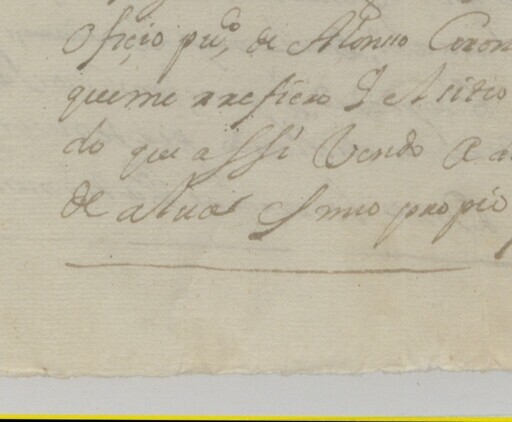 Oficio pu,co de Alonso Coron
queme rrefiero I el sitio
do que assi Vendo a
de alua es mio propio